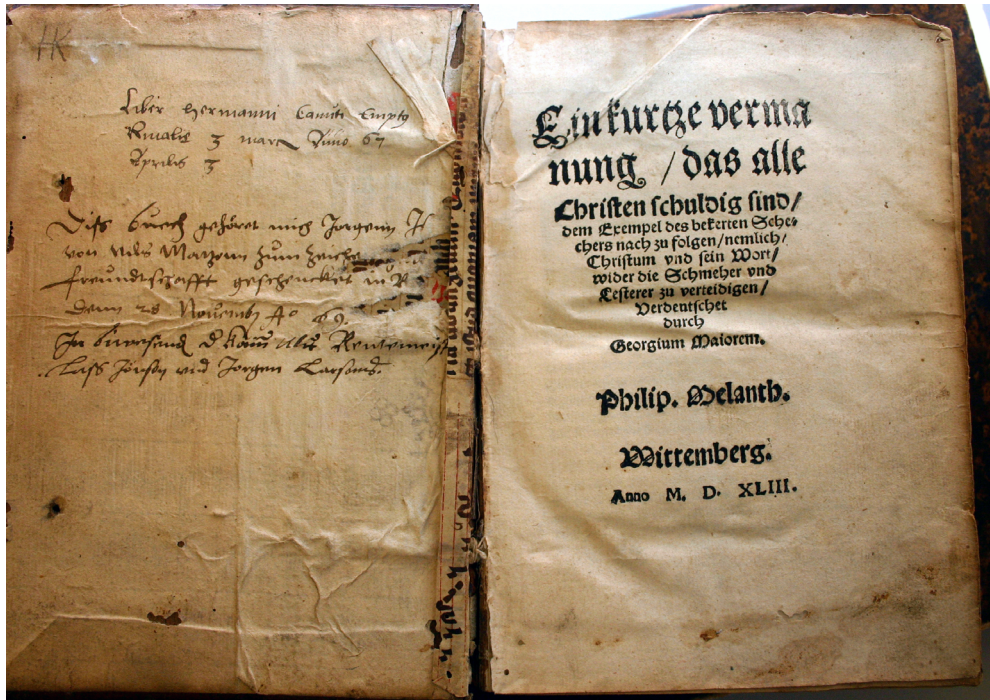 HK
Liber Hermanni Canuti Empty
3 marc Anno 67
Aprilis 3
Diss buech gehöret mich Jorgenn
von Nils Matzenn zum Zeiche
freundtschafft geschencket in
Denn 28 Novemb A° 69.
In beywesend Rentemeist
Lass Jönson vnd Jorgen Larsonns.
Ein kurtze verma
nung / das alle
Christen schuldig sind /
dem Exempel des bekerten Sche-
chers nach zu folgen / nemlich /
Christum vnd sein Wort /
wider die Schmeher vnd
Lesterer zu verteidigen /
Verdeutschet
durch
Georgium Maiorem.
Philip. Melanth.
Wittemberg.
Anno M. D. XLIII.